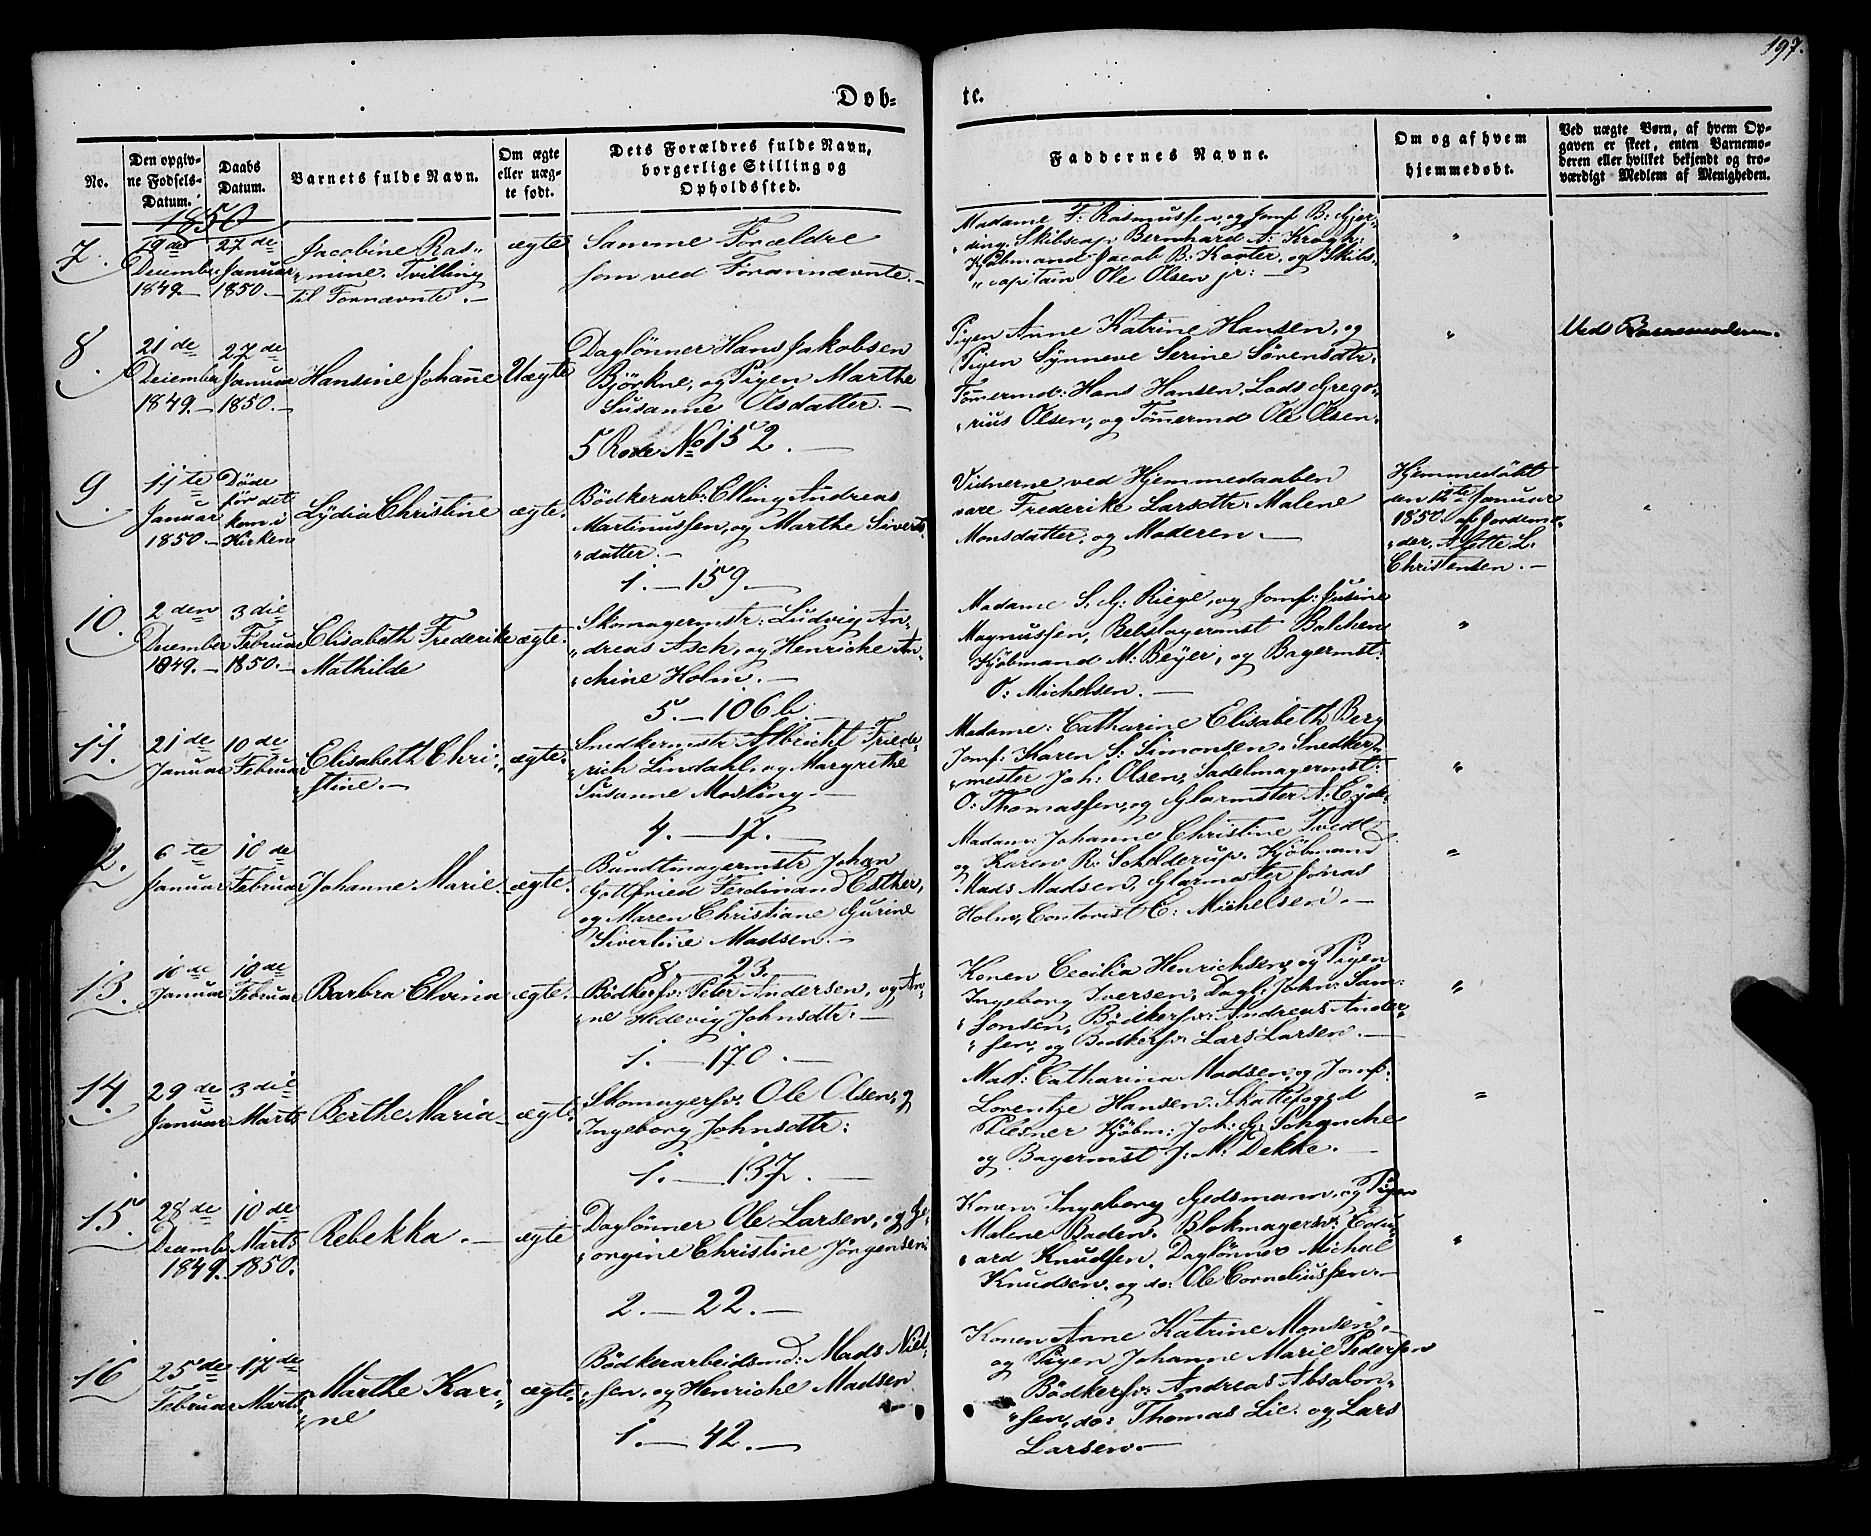 197.
Døb-
te.
No.
Den opgiv-
ne Fødsels-
Datum.
Daabs
Datum.
Barnets fulde Navn.
Om ægte
eller uæg-
te født.
Dets Forældres fulde Navn,
borgerlige Stilling og
Opholdssted.
Faddernes Navne.
Om og af hvem
hjemmedøbt.
Ved uægte Børn, af hvem Op-
gaven er skeet, enten Barnemo-
deren eller hvilket bekjendt og tro-
værdigt Medlem af Menigheden.
1850
7.
19de
December
1849
27de
Januar
1850
Jacobine Ras-
mine. Tvilling
til Fornævnte.
ægte
Samme Forældre
som ved Forannævnte.
Madame F. Rasmussen, og Jomf B. Gjer-
ding. Skibscap. Bernhard A. Krogh.
Kjøbmand Jacob B. Kanter, og Skibs-
capitain Ole Olsen jr:
8.
21de
December
1849
27de
Januar
1850
Hansine Johanne
Uægte
Daglønner Hans Jakobsen
Björkne, og Pigen Marthe
Susanne Olsdatter.
5 Rode No 152.
Pigen Anne Katrine Hansen, og
Pigen Synneve Serine Sörensdtr.
Tømermd: Hans Hansen, Lods Grego-
rius Olsen, og Tømermd Ole Olsen.
Ved Barnemoderen.
9.
11te
Januar
1850
Døde
før det
kom i
Kirken
Lydia Christine
ægte.
Bödkerarb: Elling Andreas
Martinussen, og Marthe Siverts-
datter.
1. — 159.
Vidnerne ved Hjemmedaaben
vare Frederike Larsdtr. Malene
Monsdatter, og Moderen.
Hjemmedöbt
den 12te Januar
1850. af Jordemo-
der, Alette L.
Christensen.
10.
2den
December
1849
3die
Februar
1850
Elisabeth Frederike
Mathilde
ægte.
Skomagermstr: Ludvig An-
dreas Asch, og Henriche An-
chine Holm.
5. — 106 b.
Madame S. G. Riege, og Jomf: Jusine
Magnussen, Rebslagermst Balchen
Kjöbmand M: Beyer, og Bagermst:
O: Michelsen.
11.
21de
Januar
10de
Februar
Elisabeth Chri-
stine.
ægte.
Snedkermstr Albricht Friede-
rich Lindahl, og Margrethe
Susanne Mosling.
4. — 17.
Madame: Catharine Elisabeth Berg
Jomf: Karen S. Simonsen, Snedker-
mester Joh: Olsen, Sadelmagermst:
O: Thomassen, og Glarmster N: Eyde.
2.
6te
Januar
10de
Februar
Johanne Marie
ægte.
Bundtmagermstr Johan
Gottfried Ferdinand Esther,
og Maren Christiane Gurine
Sivertine Madsen.
8. 23.
Madam: Johanne Christine Tvedt
og Karen R. Schelderup. Kjöbmand
Mads Madsen, Glarmester Jonas
Holm, Contorist C: Michelsen.
13.
16de
Januar
10de
Februar
Barbra Elvina
ægte.
Bödkersv: Peter Andersen, og An-
ne Hedevig Johnsdtr:
1. — 170.
Konen Cecilia Henrichsen, og Pigen
Ingeborg Iversen, Dagl: John Sam-
sonsen, Bödkersv: Andreas Ander-
sen, og Bødkersv: Lars Larsen.
14.
29de
Januar
3die
Marts
Berthe Maria
ægte.
Skomagersv. Ole Olsen, og
Ingeborg Johnsdtr:
1. — 137.
Mad: Catharina Madsen, og Jomf:
Lorentze Hansen. Skattefoged
Plesner Kjöbm: Joh: G. Schanche
og Bagermst J. M. Dekke.
15.
28de
Decemb
1849.
10de
Marts
1850.
Rebekka.
ægte
Daglønner Ole Larsen, og Ge-
orgine Christine Jörgensen.
2. — 22.
Konen Ingeborg Gedsmann, og Pigen
Malene Baden. Blokmagersv: Edu-
ard Knudsen, Daglønner Michal
Knudsen, og do: Ole Corneliussen.
16
25de
Februar
17de
Marts
Marthe Kari-
ne
ægte.
Bödkerarbeidsmd: Mads Niel-
sen, og Henriche Madsen
1. — 42.
Konen Anne Katrine Monsen,
og Pigen Johanne Marie Pedersen
Bödkersv: Andreas Absalon-
sen, do: Thomas Lie, og Lars
Larsen.